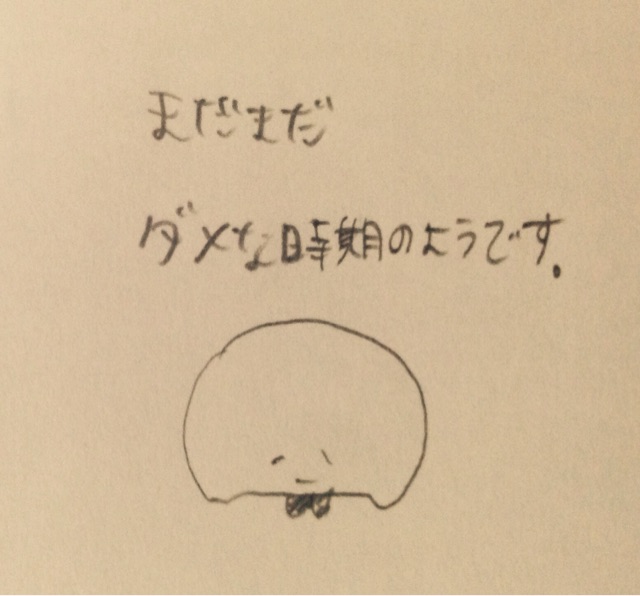 まだまだ
ダメな時期のようです.